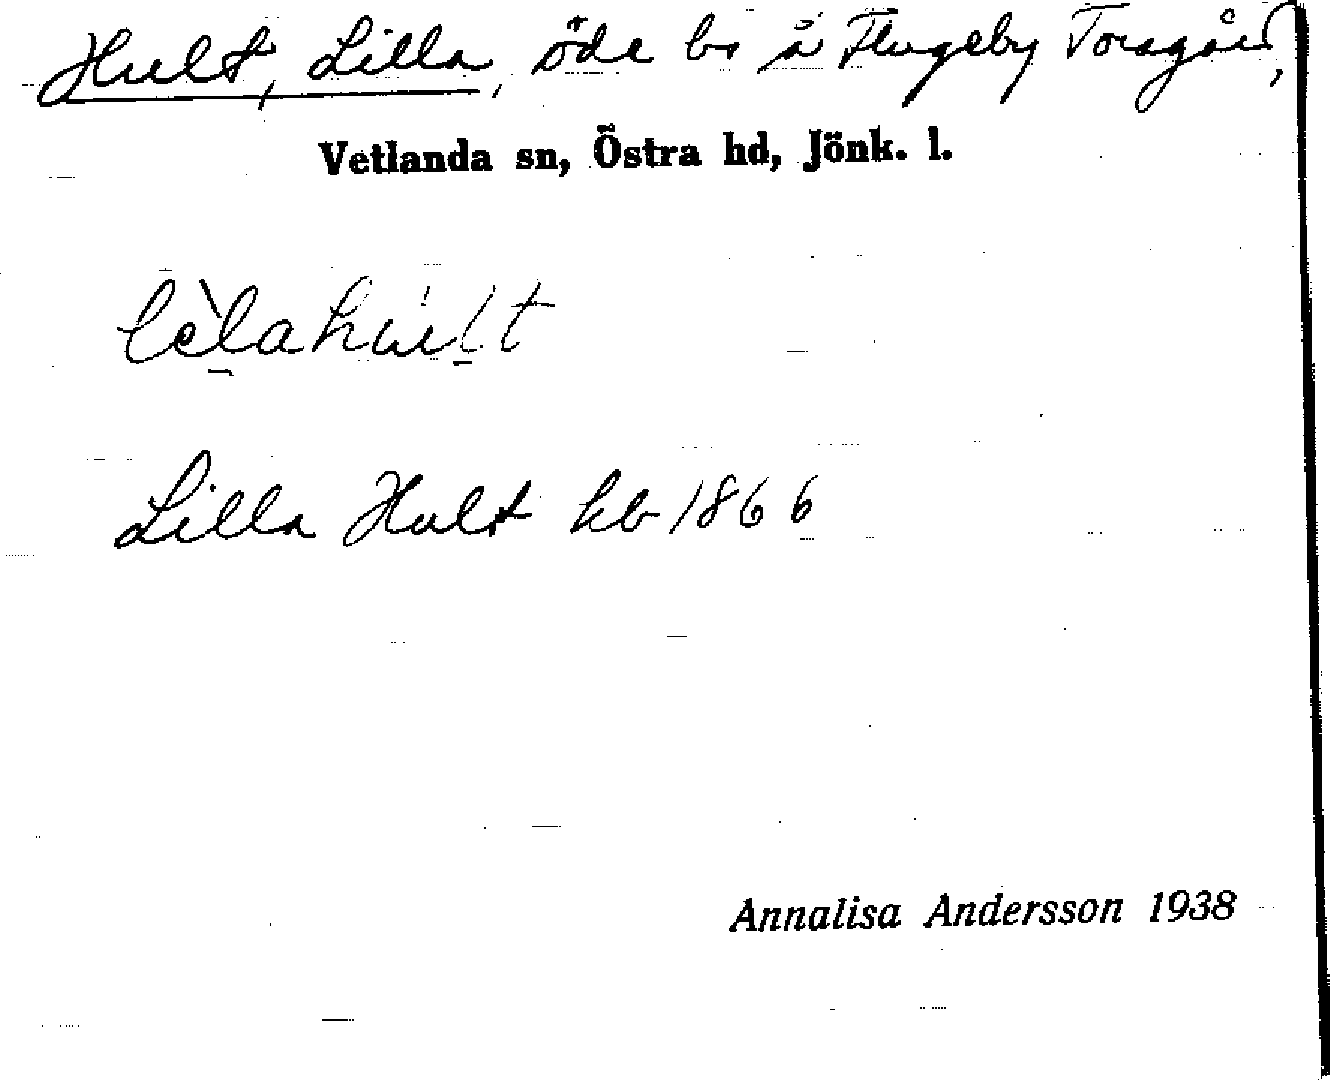 Hult, Lilla, öde bs å Flugeby Toragård,
Vetlanda sn, Östra hd, Jönk. l.
Lilla Hult kb 1866
Annalisa Andersson 1938